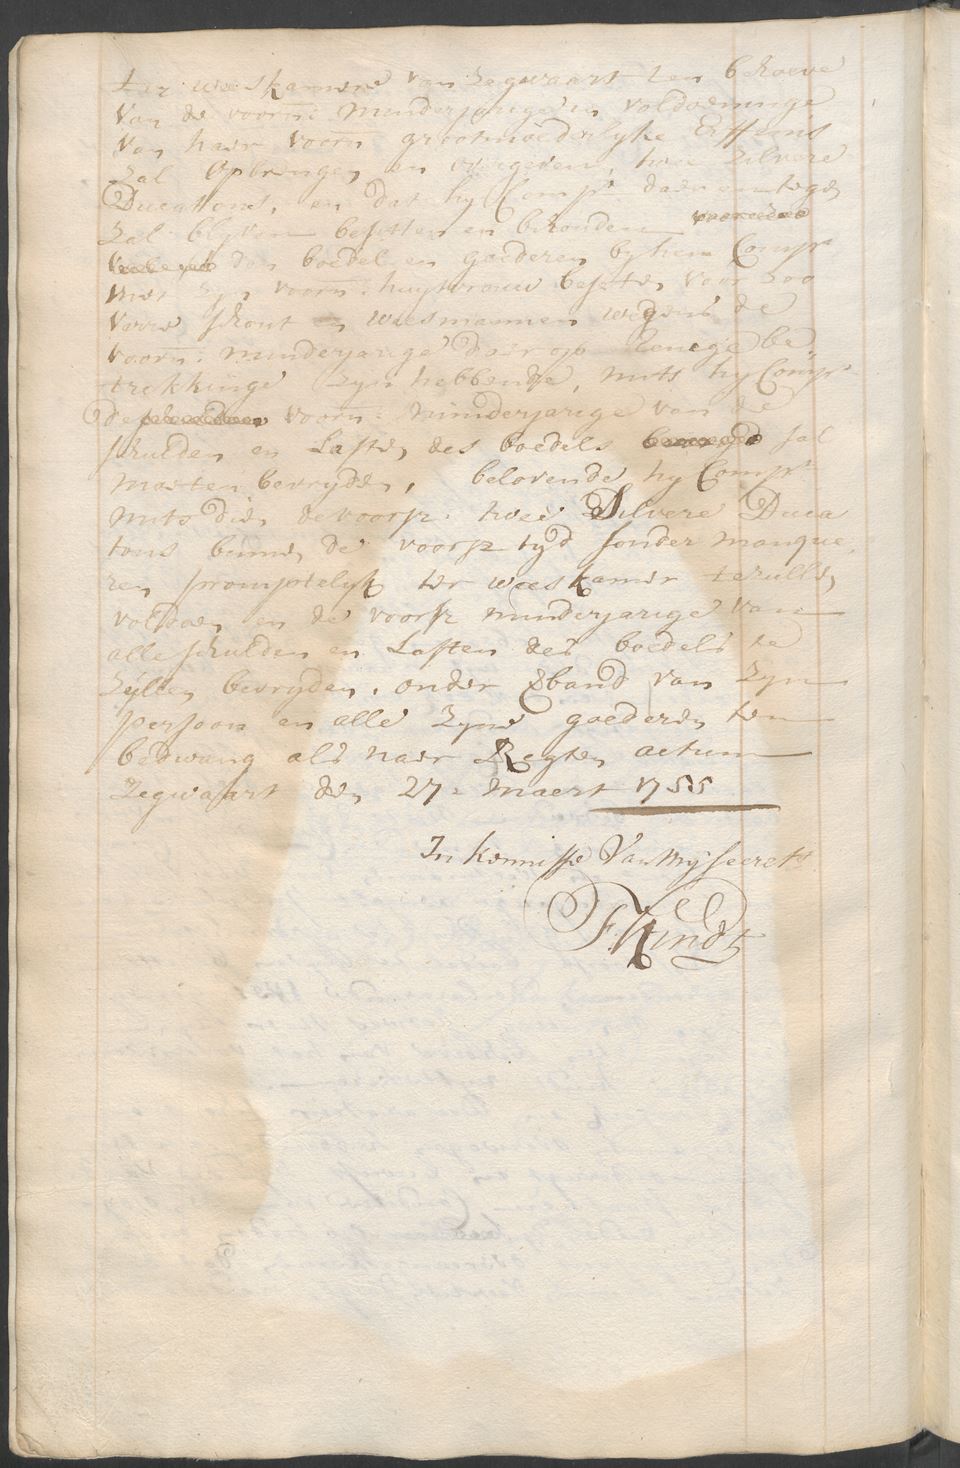 ter weeskamere van Zegwaart ten behoeve
van de voorn: minderjarige in voldoeninge
van haer voorn grootmoederlyke Erffenis
zal opbrengen en overgeven, twee zilvere
Ducattons, en dat hy Compt daer en tegen
zal blyven besitten en behouden
den boedel en goederen by hem Compt
met zyn voorn: huysvrouw beseten voor zoo
verre schout en weesmannen wegens de
voorn: minderjarige daer op eenige be
trekkinge zyn hebbende, mits hy Compt
de voorn: minderjarige van de
schulden en Lasten des boedels sal
moeten bevryden, belovende hy Compt
mits dien de voorsz: twee Silvere Duca
tons binnen de voorsz tyd sonder manque
ren promptelyk ter weeskamer te zullen
voldoen en de voorsz minderjarige van
alle schulden en Lasten des boedels te
zullen bevryden, onder Verband van zyn
persoon en alle zyne goederen ten
bedwang als naer Regten actum
Zegwaart den 27: maert 1755
In kennisse Van My secrets
F. Kindt